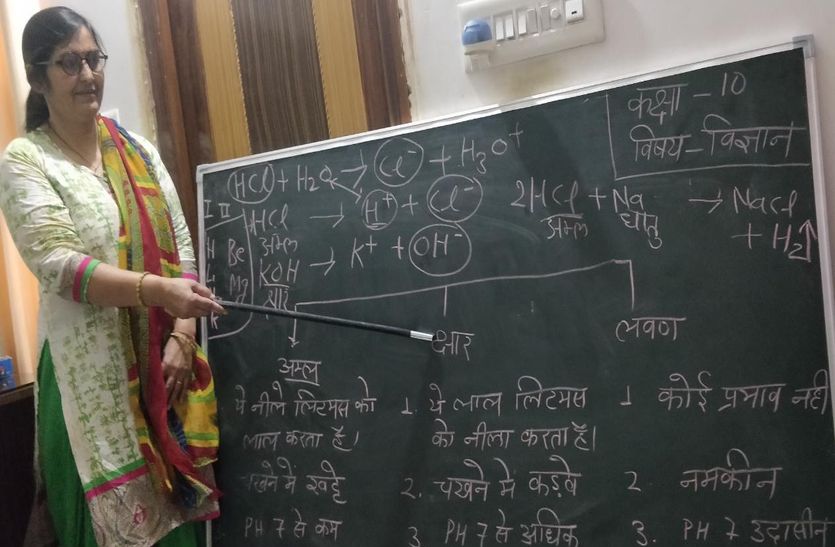 कक्षा - 10
विषय - विज्ञान
HCl + H2O → Cl⁻ + H3O⁺
I II
HCl → H⁺ + Cl⁻
अम्ल
2HCl + Na → NaCl + H2↑
अम्ल धातु
H Be
KOH → K⁺ + OH⁻
क्षार
Mg
K
अम्ल
क्षार
लवण
ये नीले लिटमस को
लाल करता है।
1. ये लाल लिटमस
को नीला करता है।
1 कोई प्रभाव नही
चखने में खट्टे
2. चखने में कड़वे
2. नमकीन
PH 7 से कम
3 PH 7 से अधिक
3. PH 7 उदासीन